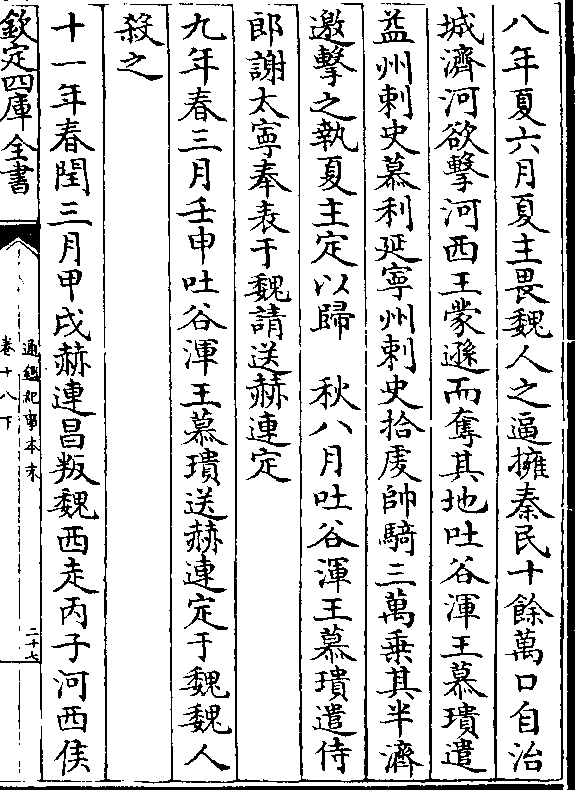 八年夏六月夏主畏魏人之逼擁秦民十餘萬口自治
城濟河欲擊河西王蒙遜而奪其地吐谷渾王慕璝遣
益州刺史慕利延寧州刺史拾虔帥騎三萬乗其半濟
邀擊之執夏主定以歸　秋八月吐谷渾王慕璝遣侍
郎謝太寧奉表于魏請送赫連定
九年春三月壬申吐谷渾王慕璝送赫連定于魏魏人
殺之
十一年春閏三月甲戌赫連昌叛魏西走丙子河西侯
欽定四庫全書
通鑑紀事本末
卷十八下
二十七